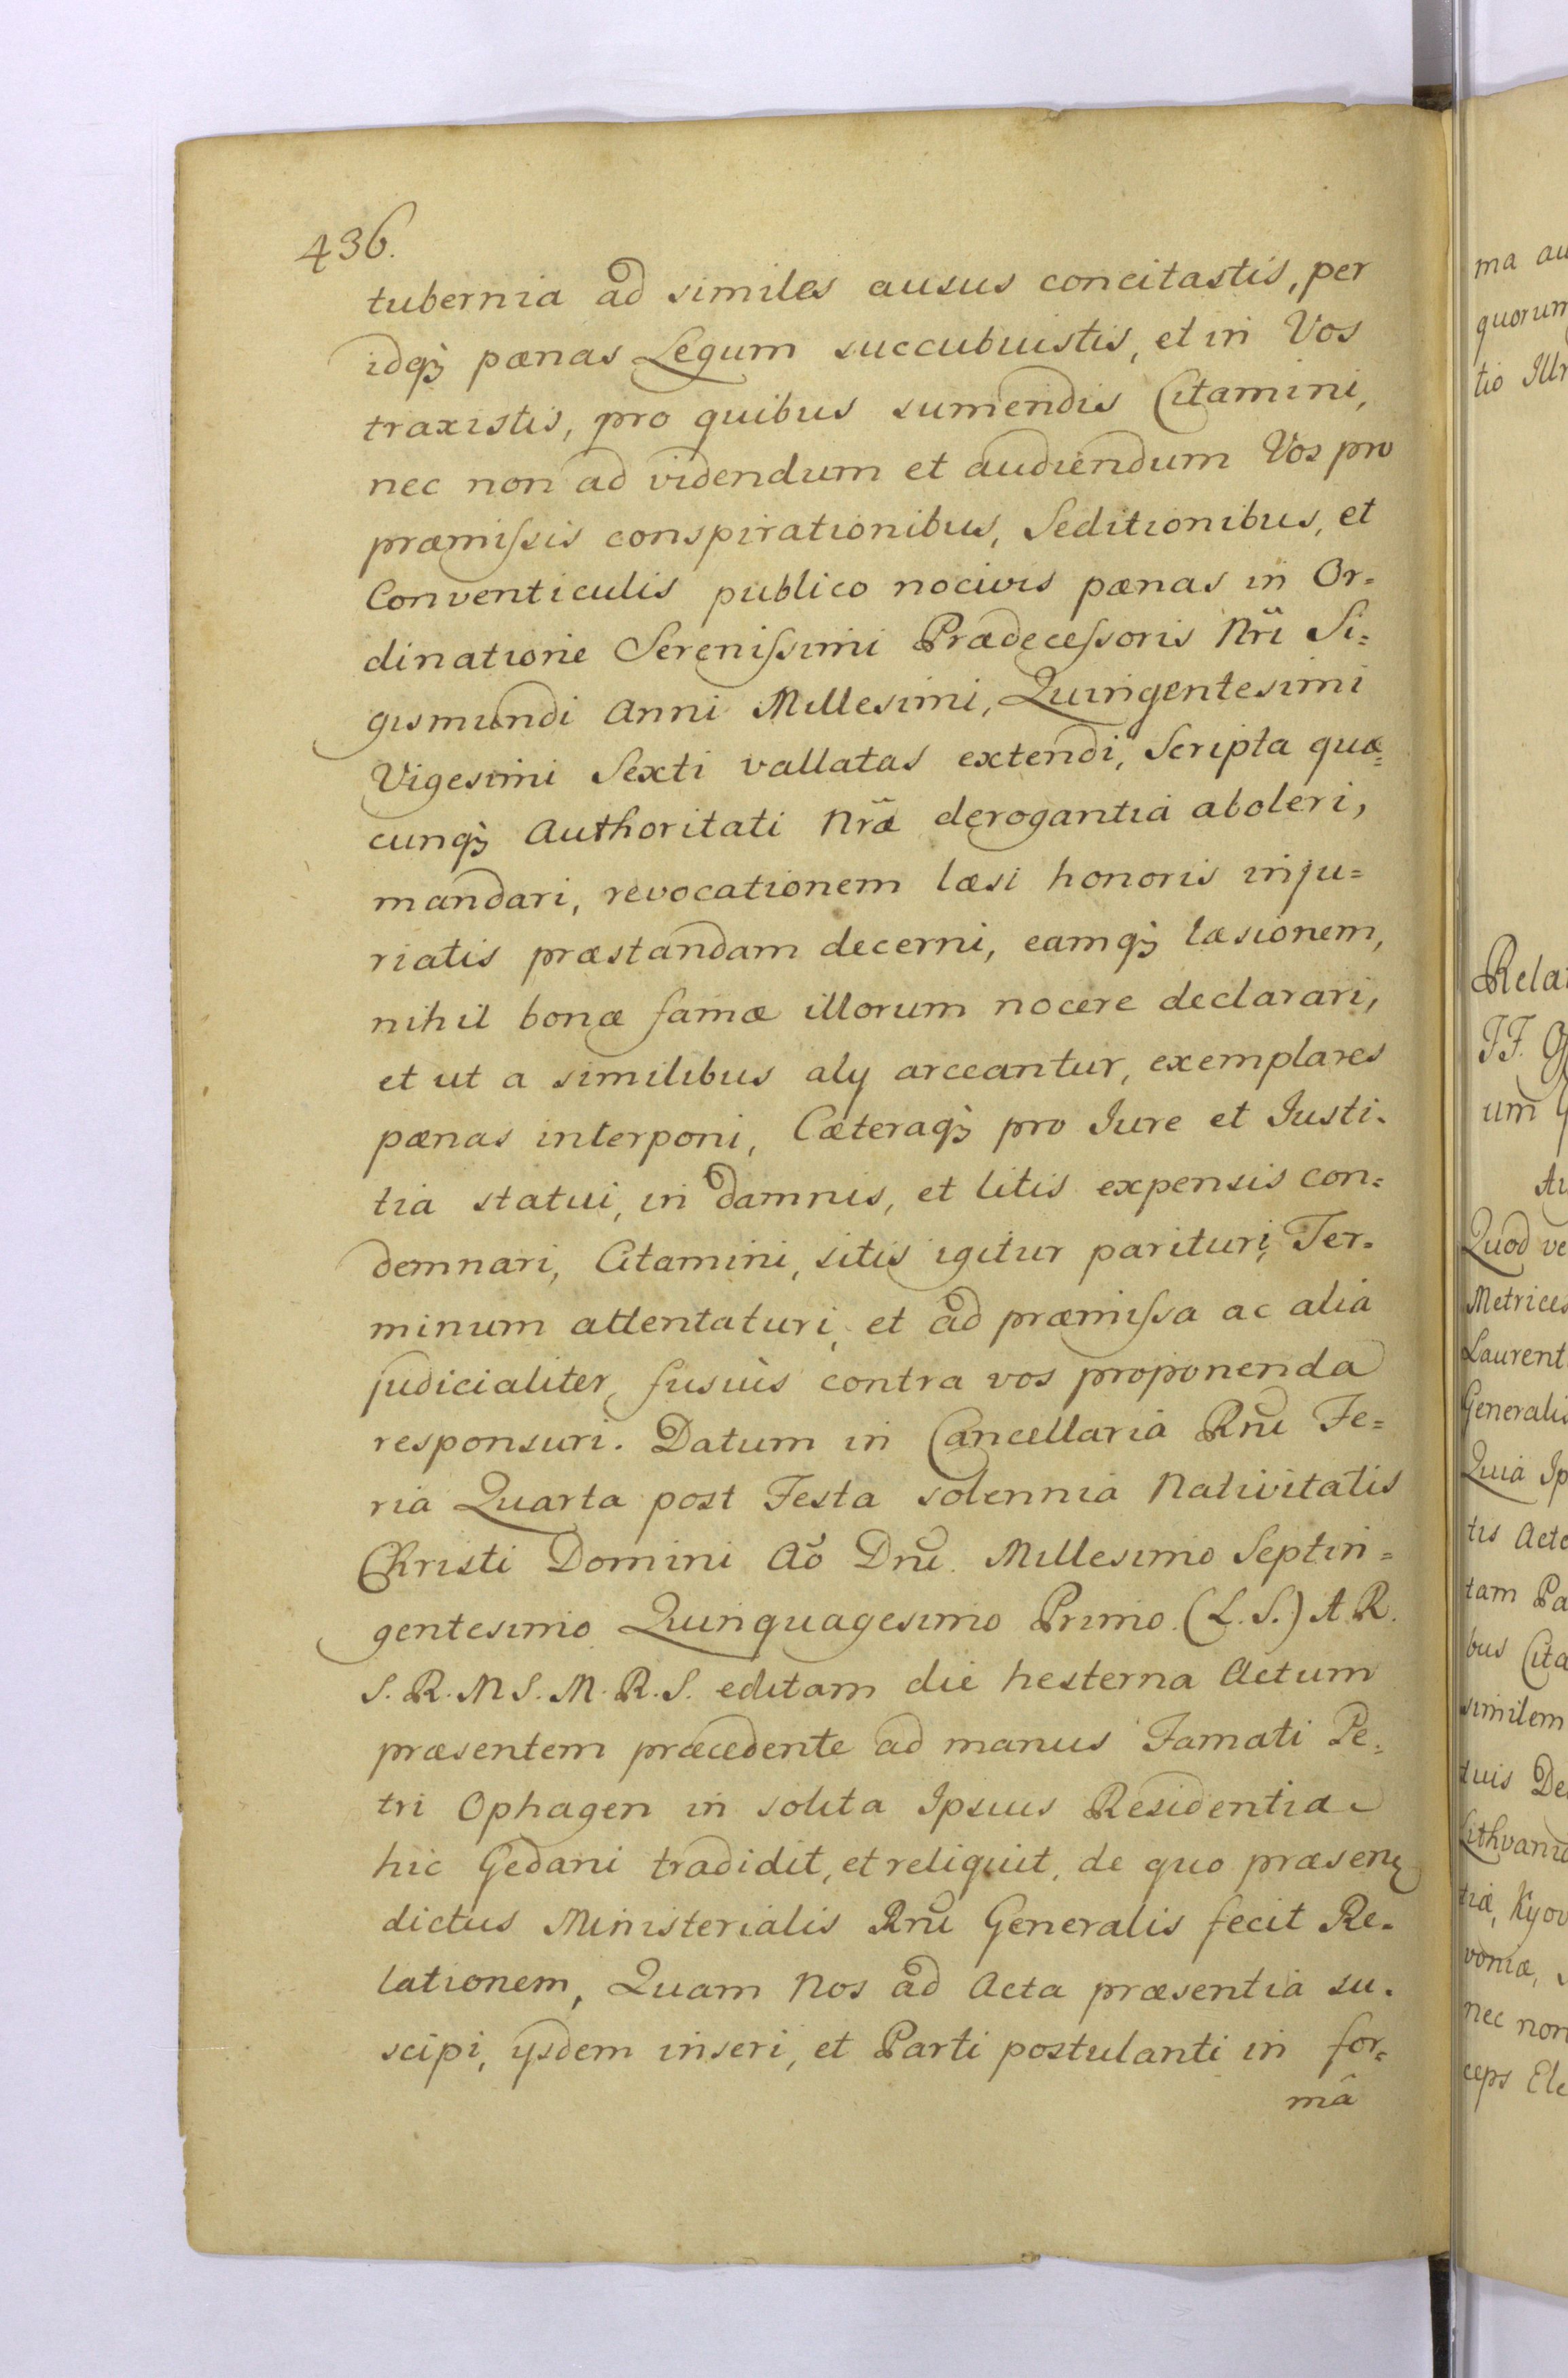 436.
tubernia ad similes ausus concitastis, per
idq́ꝫ pænas Legum succubuistis, et in Vos
traxistis, pro quibus sumendis Citamini,
nec non ad videndum et audiendum Vos pro
præmiſsis conspirationibus, Seditionibus, et
Conventiculis publico nocivis pænas in Or=
dinatione Sereniſsimi Prædeceſsoris Nri̅ Si=
gismundi Anni Millesimi, Quingentesimi
Vigesimi Sexti vallatas extendi, Scripta quæ=
cunq́ꝫ Authoritati Nræ̅ derogantia aboleri,
mandari, revocationem læsi honoris inju=
riatis præstandam decerni, eamq́ꝫ læsionem,
nihil bonæ famæ illorum nocere declarari,
et ut a similibus alÿ arceantur, exemplares
pænas interponi, Cæteraq́ꝫ pro Iure et Iusti=
tia statui, in damnis, et litis expensis con=
demnari, Citamini, sitis igitur parituri, Ter=
minum attentaturi, et ad præmiſsa ac alia
judicialiter, fusiùs contra vos proponenda
responsuri. Datum in Cancellaria Rni̅ Fe=
ria Quarta post Festa solennia Nativitatis
Christi Domini Ao̅ Dni̅. Millesimo Septin=
gentesimo Quinquagesimo Primo. (L. S.) A. R.
S. R. M S. M. R. S. editam die hesterna Actum
præsentem præcedente ad manus Famati Pe=
tri Ophagen in solita Ipsius Residentia
hic Gedani tradidit, et reliquit, de quo præsens
dictus Ministerialis Rni̅ Generalis fecit Re=
lationem, Quam Nos ad Acta præsentia su=
scipi, ÿsdem inseri, et Parti postulanti in for=
mâ
ma au
quorum
tio Illr
Relat
JJ.
um
Quod ve
Metrices
Laurent
Generalis
Quia Ip
tis Acto
tam Pa
bus Cita
similem
suis De
Lithvanic
tiæ, Kyov
voniæ,
nec non
ceps Ele